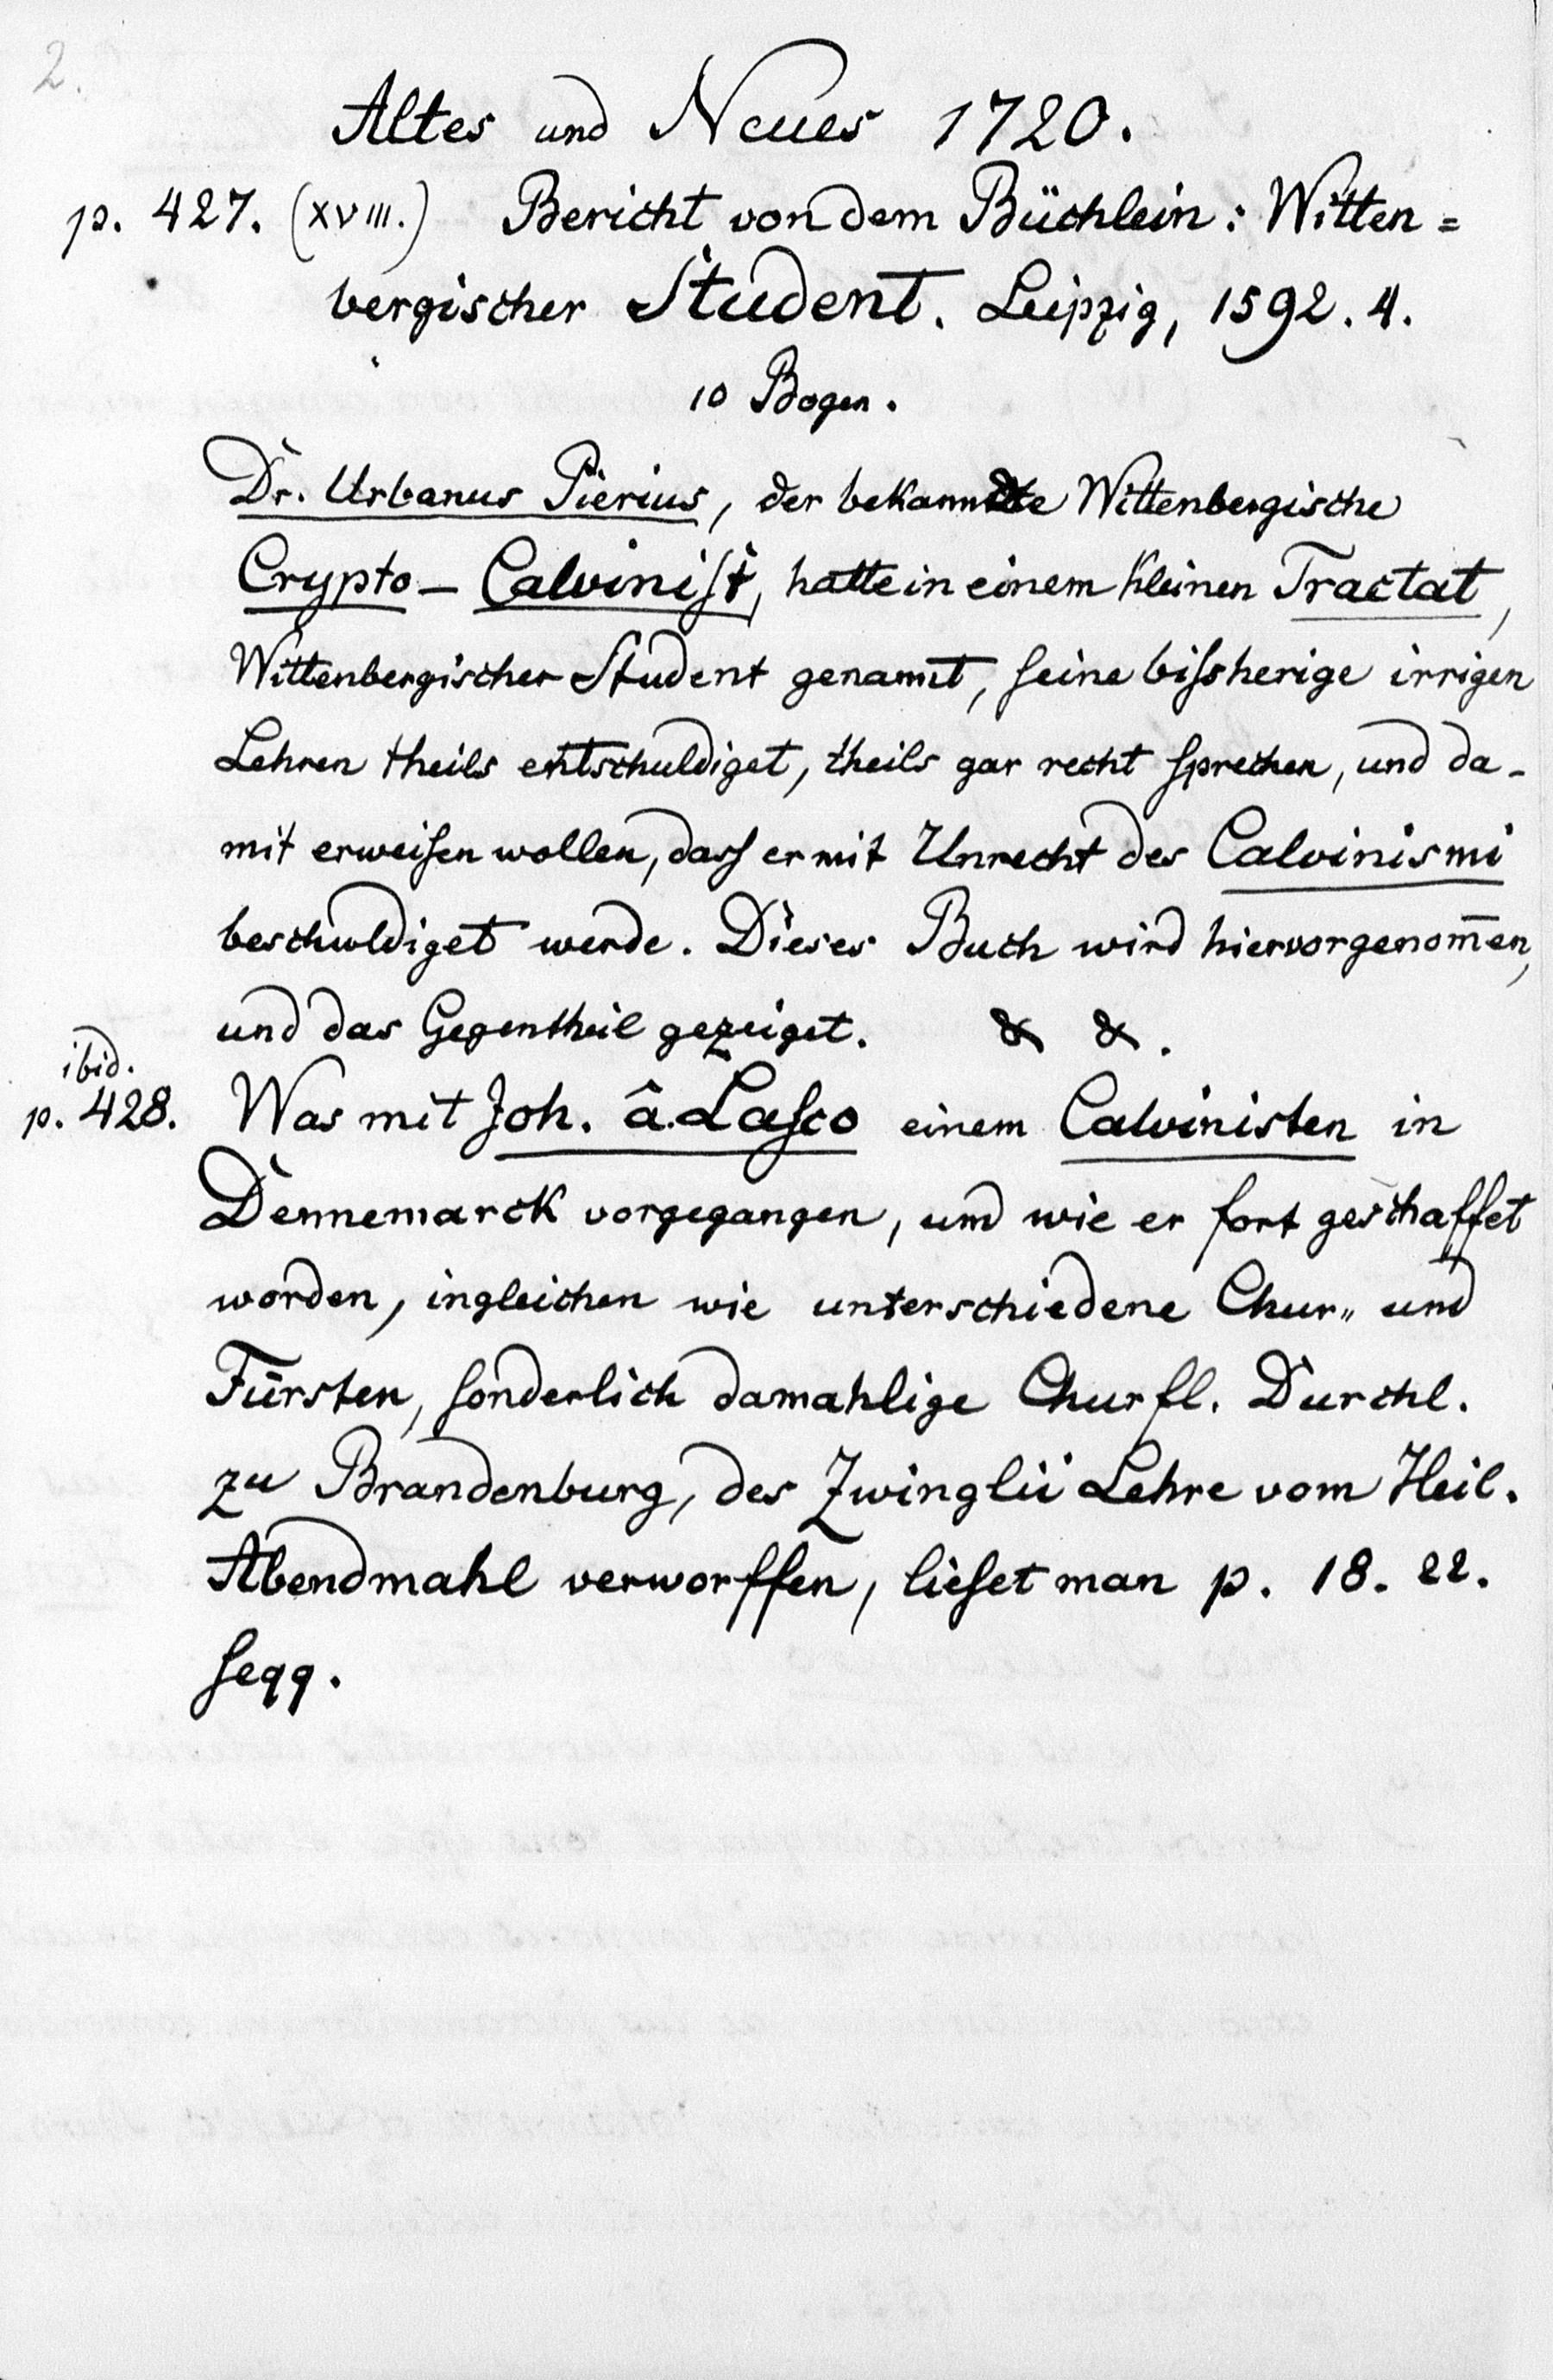 2.
Altes und Neues 1720.
p. 427. (XVIII.) Bericht von dem Büchlein: Witten=
bergischer Student. Leipzig, 1592. 4.
10 Bogen.
Dr. Urbanus Pierius, der bekanndte Wittenbergische
Crypto-Calviniſt, hatte in einem kleinen Tractat,
Wittenbergischer Student genannt, ſeine biſsherige irrigen
Lehren theils entschuldiget, theils gar recht ſprechen, und da-
mit erweiſen wollen, dasſ er mit Unrecht des Calvinismi
beschuldiget werde. Dieses Buch wird hiervorgenom̄en,
und das Gegentheil gezeiget. & &.
ibid.
p. 428. Was mit Joh. â. Laſco einem Calvinisten in
Dennemarck vorgegangen, und wie er fort geschaffet
worden, ingleichen wie unterschiedene Chur„ und
Fürsten, ſonderlich damahlige Churfl. Durchl.
zu Brandenburg, des Zwinglii Lehre vom Heil.
Abendmahl verworffen, lieſet man p. 18. 22.
ſeqq.